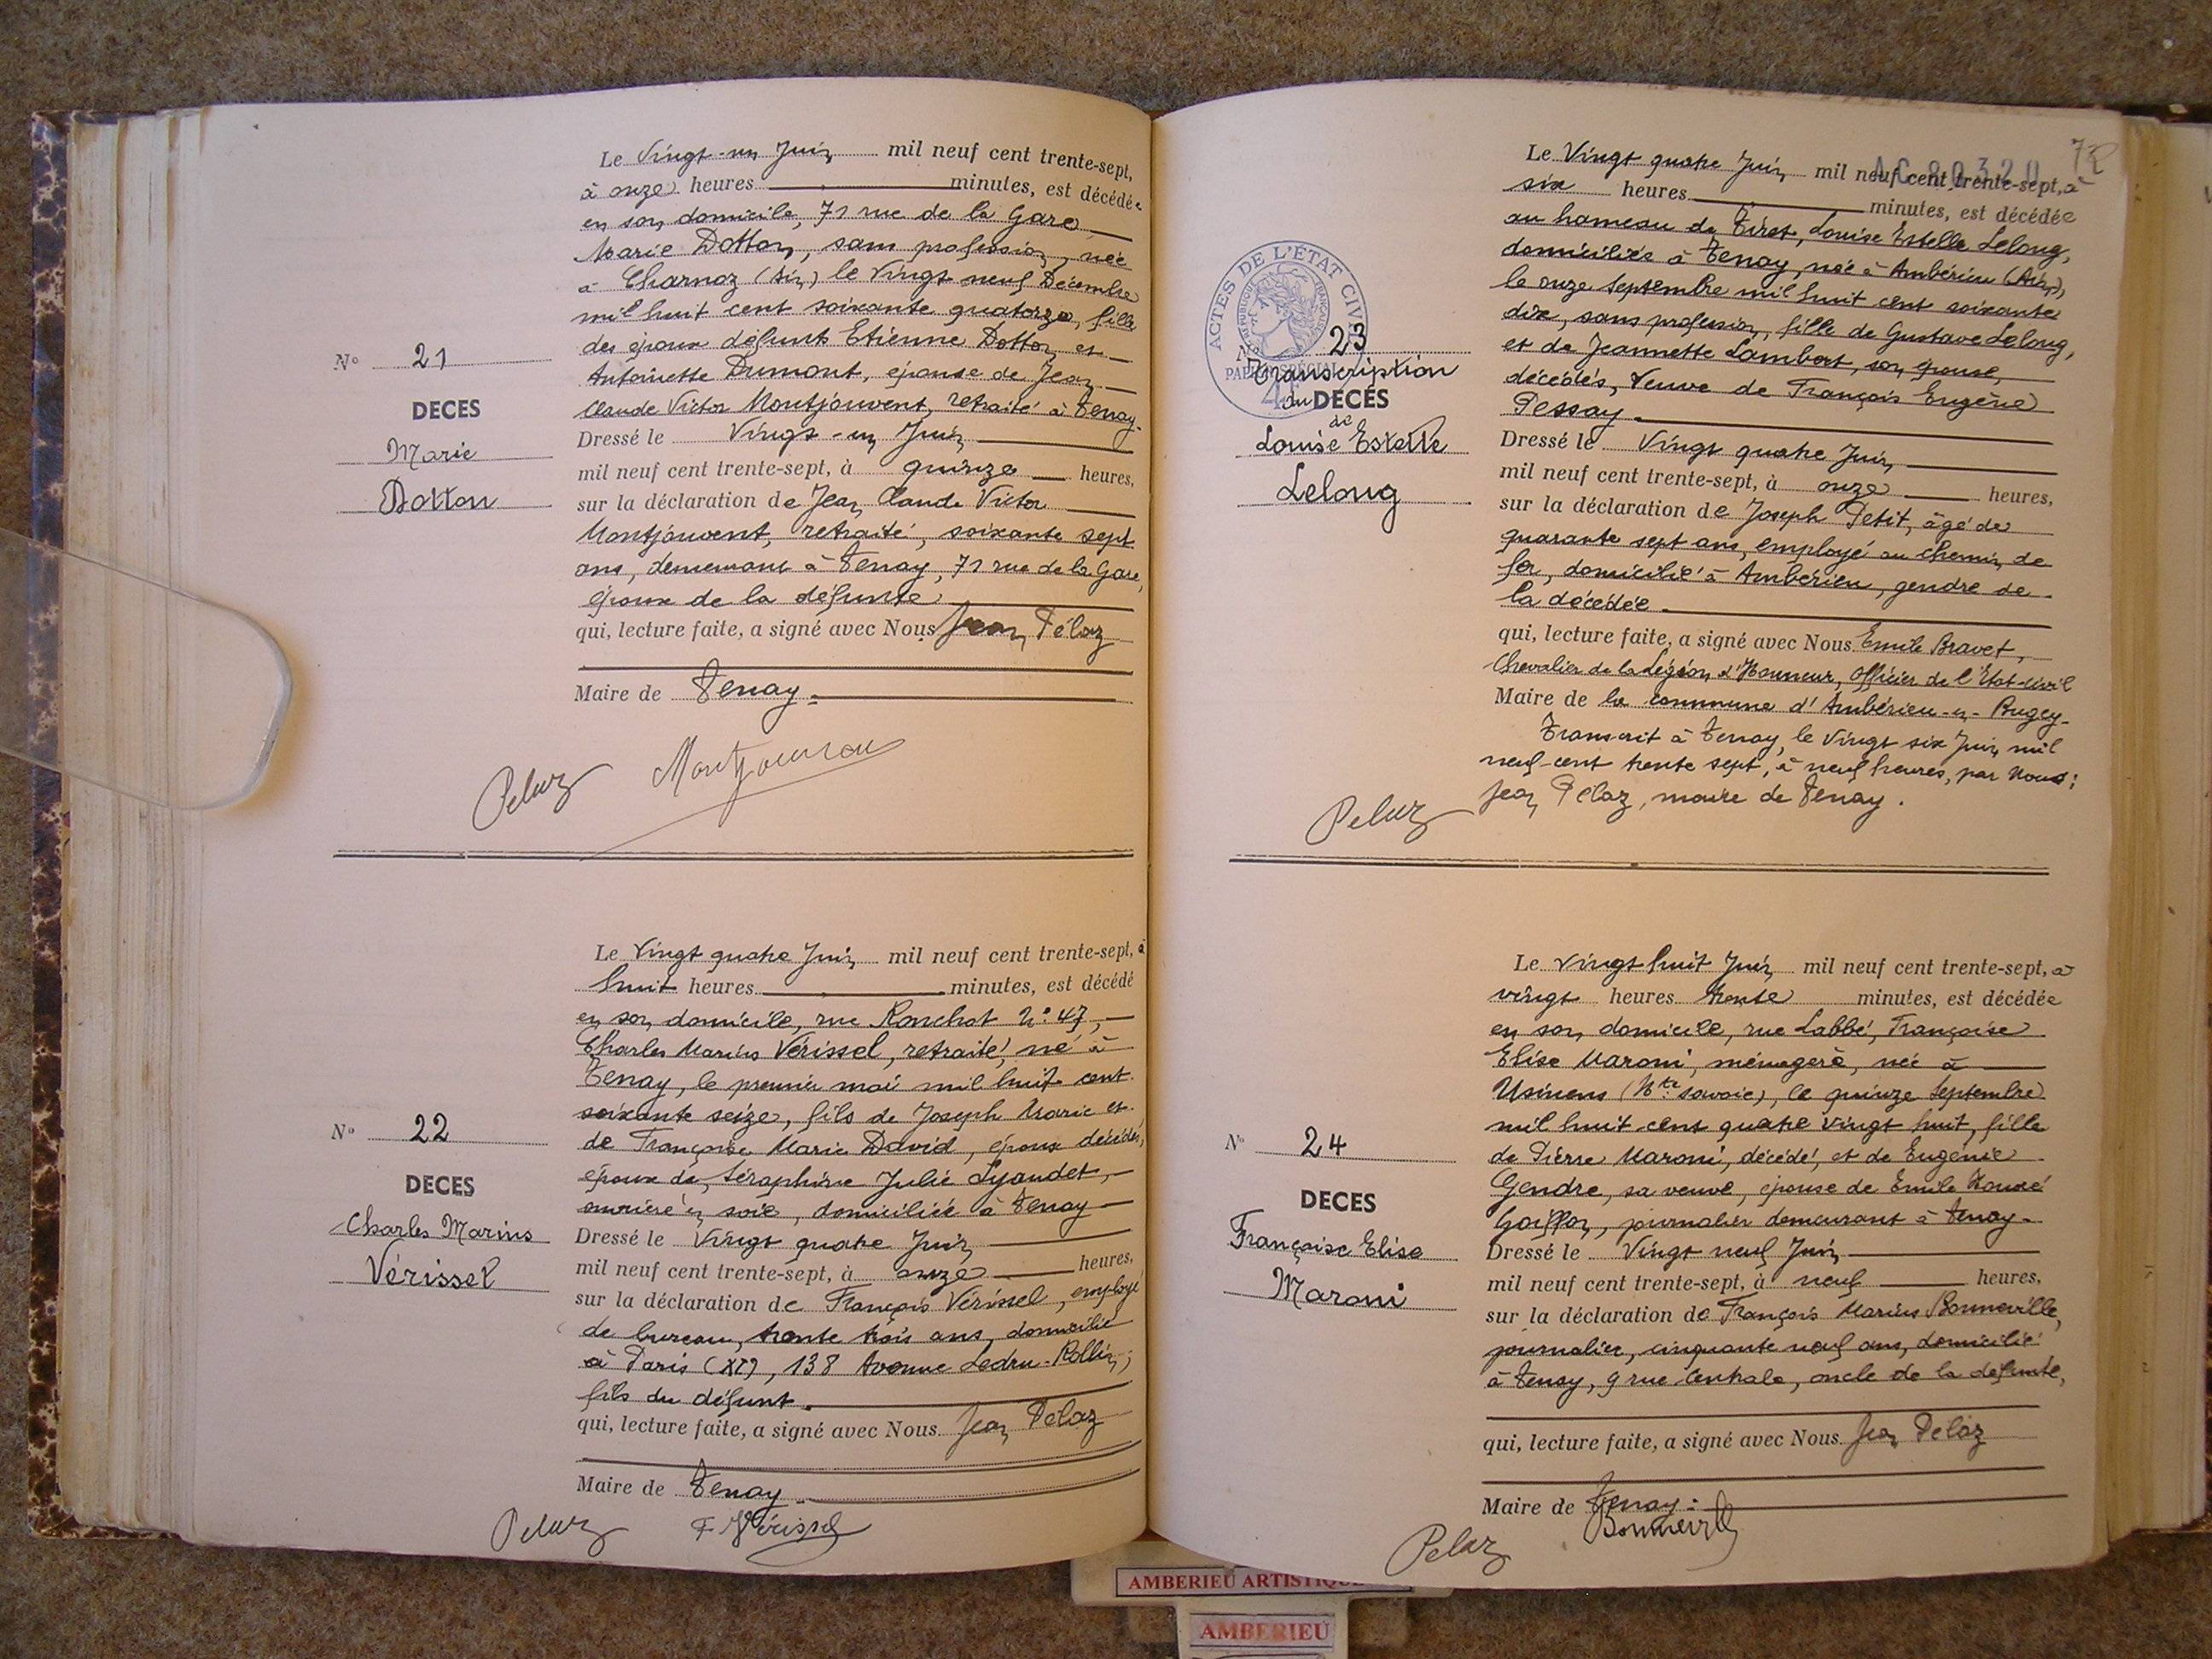 Le Vingt-un Juin mil neuf cent trente-sept,
à onze heures minutes, est décédée
en son domicile, 71 rue de la Gare
Marie Dotton, sans profession, née
à Charnoz (Ain) le vingt neuf Décembre
mil huit cent soixante quatorze, fille
des époux défunts Etienne Dotton et
Antoinette Dumont, épouse de Jean
Claude Victor Montjouvent, retraité à Tenay.
N° 21
DECES
Marie
Dotton
Dressé le Vingt-un Juin
mil neuf cent trente-sept, à quinze heures,
sur la déclaration de Jean Claude Victor
Montjouvent, retraité, soixante sept
ans, demeurant à Tenay, 71 rue de la Gare,
époux de la défunte
qui, lecture faite, a signé avec Nous Jean Pélaz
Maire de Tenay.
Pelaz Montjouvent
Le Vingt quatre Juin mil neuf cent trente-sept, à
huit heures minutes, est décédé
en son domicile, rue Ronchot N° 47,
Charles Marius Vérissel, retraité, né à
Tenay, le premier mai mil huit cent
soixante seize, fils de Joseph Marie et
de Françoise Marie David, époux décédés,
époux de Séraphine Julie Lyaudet,
ouvrière en soie, domiciliée à Tenay
N° 22
DECES
Charles Marius
Vérissel
Dressé le Vingt quatre Juin
mil neuf cent trente-sept, à onze heures,
sur la déclaration de François Vérissel, employé
de bureau, trente trois ans, domicilié
à Paris (XI), 138 Avenue Ledru-Rollin,
fils du défunt.
qui, lecture faite, a signé avec Nous Jean Pelaz
Maire de Tenay
Pelaz F Vérissel
7
Le Vingt quatre Juin mil neuf cent trente-sept, à
six heures minutes, est décédée
au hameau de Tiret, Louise Estelle Lelong,
domiciliée à Tenay, née à Ambérieu (Ain),
le onze Septembre mil huit cent soixante
dix, sans profession, fille de Gustave Lelong,
et de Jeannette Lambert, son épouse,
décédés, Veuve de François Eugène
Pessay.
ACTES DE L'ÉTAT CIVIL
RÉPUBLIQUE FRANÇAISE
PAPIER SPECIAL
N° 23
Transcription
du DECES
de
Louise Estelle
Lelong
Dressé le Vingt quatre Juin
mil neuf cent trente-sept, à onze heures,
sur la déclaration de Joseph Petit, âgé de
quarante sept ans, employé au chemin de
fer, domicilié à Ambérieu, gendre de
la décédée.
qui, lecture faite, a signé avec Nous Emile Bravet,
Chevalier de la Légion d'Honneur, Officier de l'Etat-civil
Maire de la commune d'Ambérieu-en-Bugey.
Transcrit à Tenay, le Vingt six Juin mil
neuf-cent trente sept, à neuf heures, par Nous;
Jean Pélaz, maire de Tenay.
Pelaz
Le vingt huit Juin mil neuf cent trente-sept, à
vingt heures trente minutes, est décédée
en son domicile, rue Labbé, Françoise
Elise Maroni, ménagère, née à
Usinens (Hte Savoie), le quinze Septembre
mil huit cent quatre vingt huit, fille
de Pierre Maroni, décédé, et de Eugénie
Gendre, sa veuve, épouse de Emile
Goiffon, journalier demeurant à Tenay.
N° 24
DECES
Françoise Elise
Maroni
Dressé le Vingt neuf Juin
mil neuf cent trente-sept, à neuf heures,
sur la déclaration de François Marius Bonneville,
journalier, cinquante neuf ans, domicilié
à Tenay, 9 rue Centrale, oncle de la défunte,
qui, lecture faite, a signé avec Nous Jean Pélaz
Maire de Tenay.
Pelaz Bonneville
AMBERIEU ARTISTIQUE
AMBERIEU